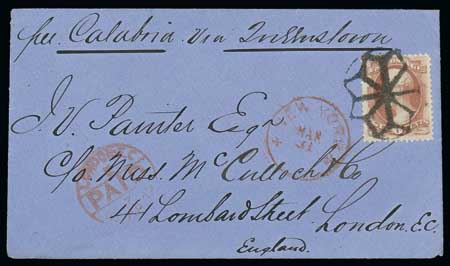 per Calabria Via Queenstown
J. V. Painter Esq
NEW YORK
MAR
31
c/o Mess. McCulloch & Co
LONDON E.C.
PAID
41 Lombard Street
London. E.C.
England.